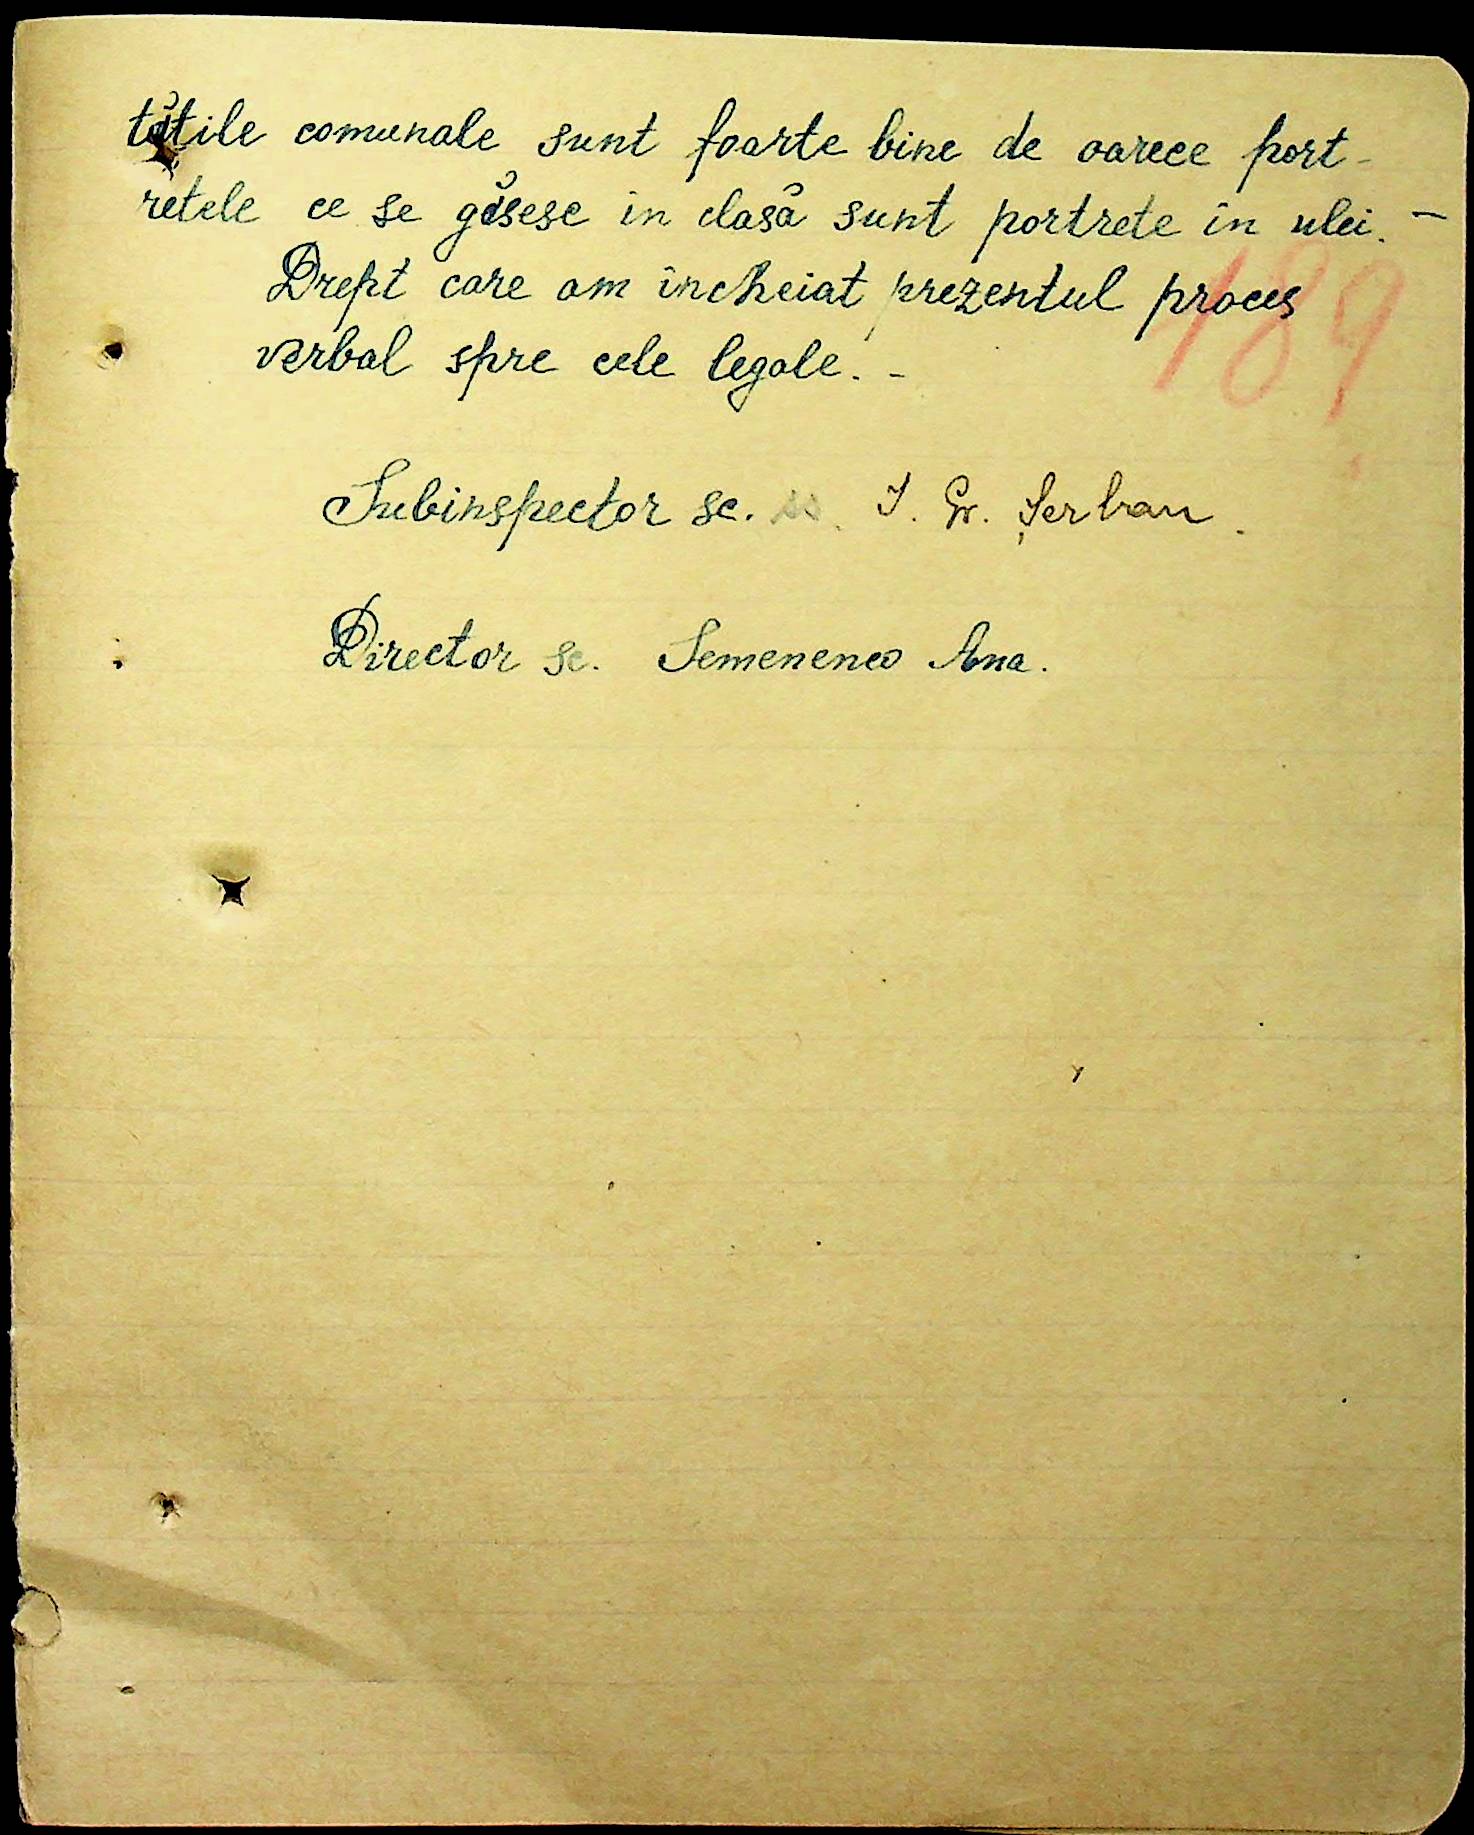 tățile comunale sunt foarte bine de oarece port-
retele ce se găsesc in clasă sunt portrete în ulei. -
189
Drept care am încheiat prezentul proces
verbal spre cele legale. -
Subinspector sc. ss. I. Gr. Șerban.
Director sc. Semenenco Ana.